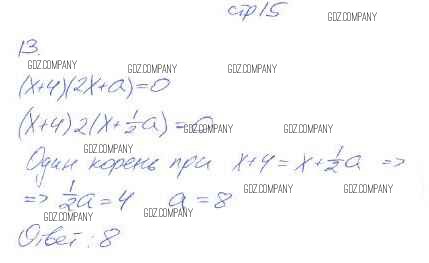 стр15
GDZ.COMPANY
13.
GDZ.COMPANY GDZ.COMPANY GDZ.COMPANY
(x+4)(2x+a)=0
(x+4)2(x+½a)=0
GDZ.COMPANY GDZ.COMPANY
GDZ.COMPANY
Один корень при x+4=x+½a =>
=> ½a=4 a=8
GDZ.COMPANY GDZ.COMPANY
GDZ.COMPANY GDZ.COMPANY
Ответ: 8
GDZ.COMPANY